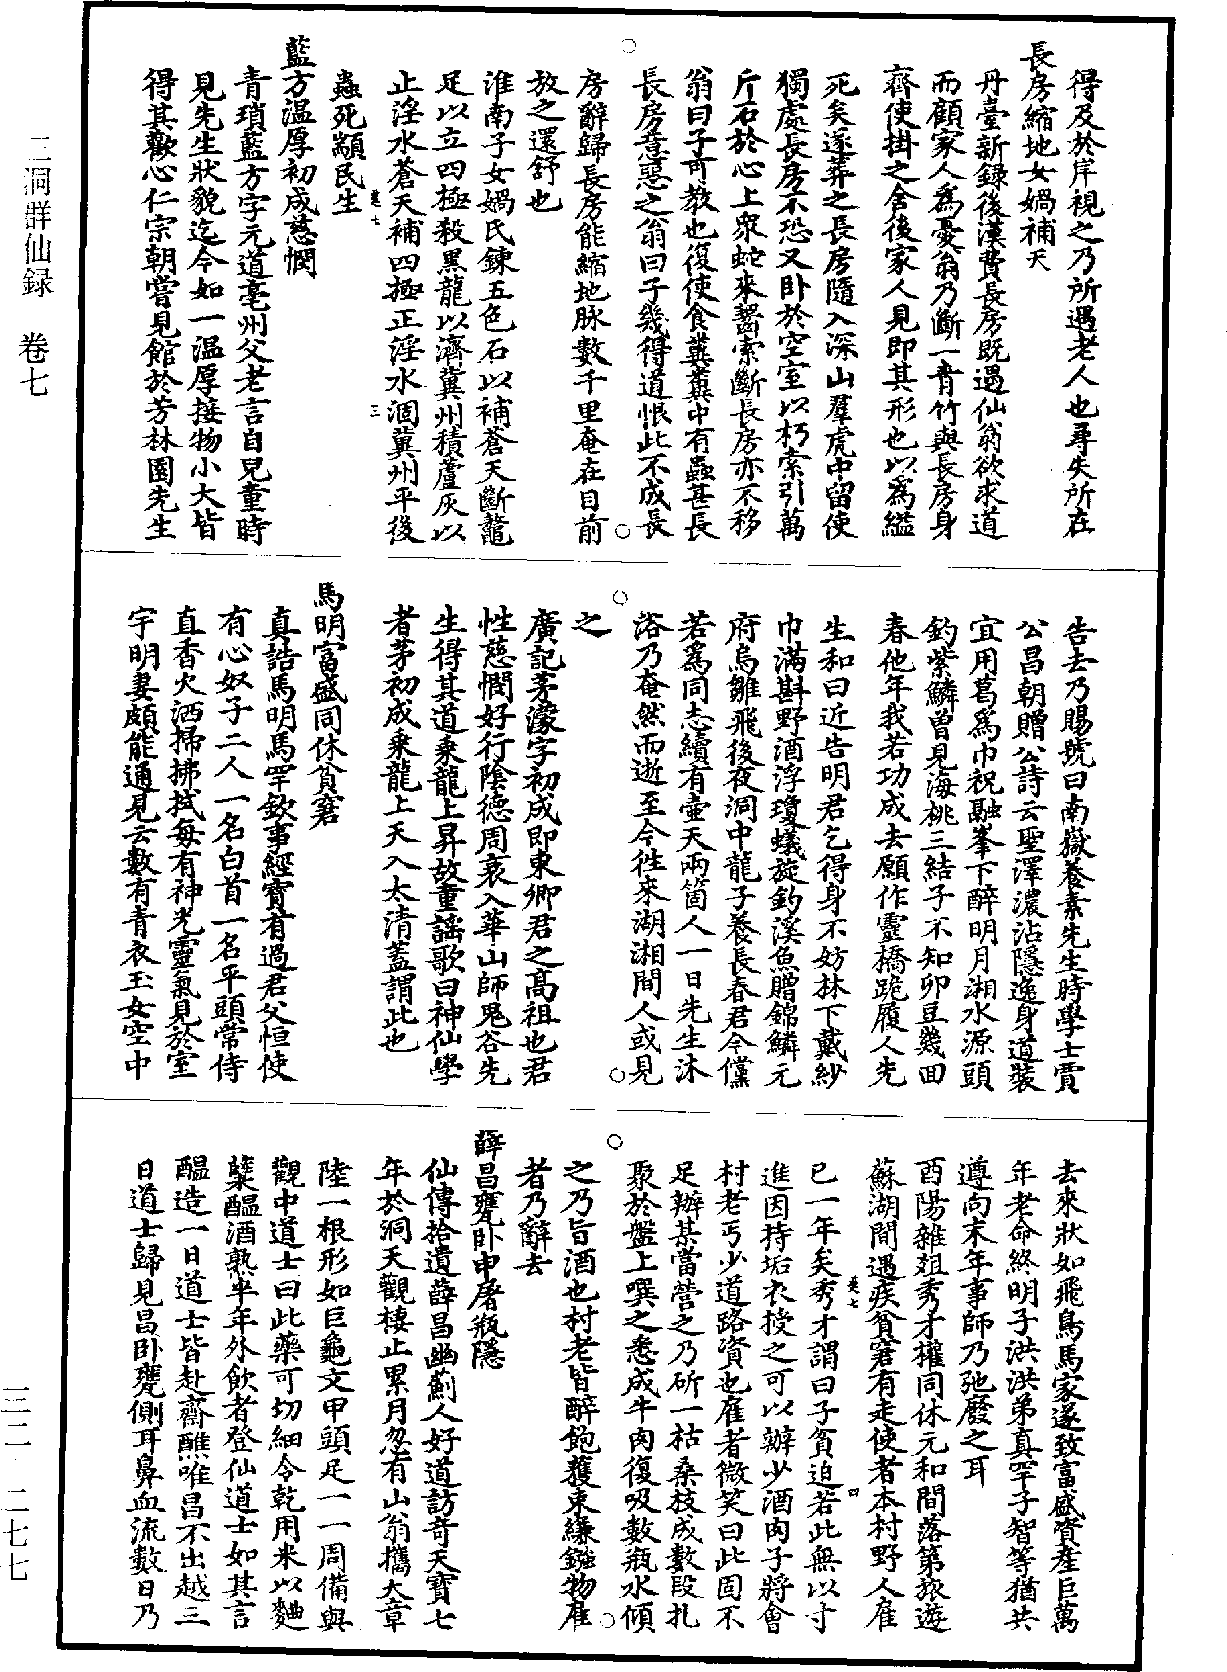 得及於岸視之乃所遇老人也尋失所在
長房縮地女媧補天
丹臺新録後漢費長房既遇仙翁欲求道
而顧家人為憂翁乃斷一青竹與長房身
齊使掛之舍後家人見即其形也以為縊
死矣遂葬之長房隨入深山羣虎中留使
獨處長房不恐又卧於空室以朽索引萬
斤石於心上衆蛇來齧索斷長房亦不移
翁曰子可教也復使食糞糞中有蟲甚長
長房意惡之翁曰子幾得道恨此不成長
房辭歸長房能縮地脉數千里奄在目前
放之還舒也
淮南子女媧氏鍊五色石以補蒼天斷鼇
足以立四極殺黑龍以濟冀州積蘆灰以
止淫水蒼天補四極正淫水涸冀州平後
蟲死顓民生
藍方温厚初成慈憫
青瑣藍方字元道亳州父老言自兒童時
見先生狀貌迄今如一温厚接物小大皆
得其歡心仁宗朝嘗見館於芳林園先生
告去乃賜號曰南嶽養素先生時學士賈
公昌朝贈公詩云聖澤濃沾隱逸身道裝
宜用葛為巾祝融峯下醉明月湘水源頭
釣紫鱗曾見海桃三結子不知卯豆幾回
春他年我若功成去願作靈橋跪履人先
生和曰近告明君乞得身不妨林下戴紗
巾滿斟野酒浮瓊蟻旋釣溪魚贈錦鱗元
府烏雛飛後夜洞中龍子養長春君今儻
若為同志續有壷天兩箇人一日先生沐
浴乃奄然而逝至今徃來湖湘間人或見
之
廣記茅濛字初成即東卿君之高祖也君
性慈憫好行陰德周衰入華山師鬼谷先
生得其道乘龍上昇故童謡歌曰神仙學
者茅初成乘龍上天入太清蓋謂此也
馬明富盛同休貧窘
真誥馬明馬罕欽事經寳有過君父恒使
有心奴子二人一名白首一名平頭常侍
直香火洒掃拂拭每有神光靈氣見於室
宇明妻頗能通見云數有青衣玉女空中
去來狀如飛鳥馬家遂致富盛資産巨萬
年老命終明子洪洪弟真罕子智等猶共
遵向末年事師乃弛廢之耳
酉陽雜俎秀才權同休元和間落第旅遊
蘇湖間遇疾貧窘有走使者本村野人雇
已一年矣秀才謂曰子貧迫若此無以寸
進因持垢衣授之可以辦少酒肉子將會
村老丐少道路資也雇者微笑曰此固不
足辦某當營之乃斫一枯桑枝成數段扎
聚於盤上噀之悉成牛肉復吸數瓶水傾
之乃旨酒也村老皆醉飽獲束縑鏹物雇
者乃辭去
薛昌甕卧申屠瓶隱
仙傳拾遺薛昌幽薊人好道訪奇天寶七
年於洞天觀棲止累月忽有山翁攜大章
陸一根形如巨龜文甲頭足一一周備與
觀中道士曰此藥可切細令乾用米以麯
蘗醞酒熟半年外飲者登仙道士如其言
醞造一日道士皆赴齋醮唯昌不出越三
日道士歸見昌卧甕側耳鼻血流數日乃
三洞群仙録 卷七
三二 二七七
卷七 三
卷七 四